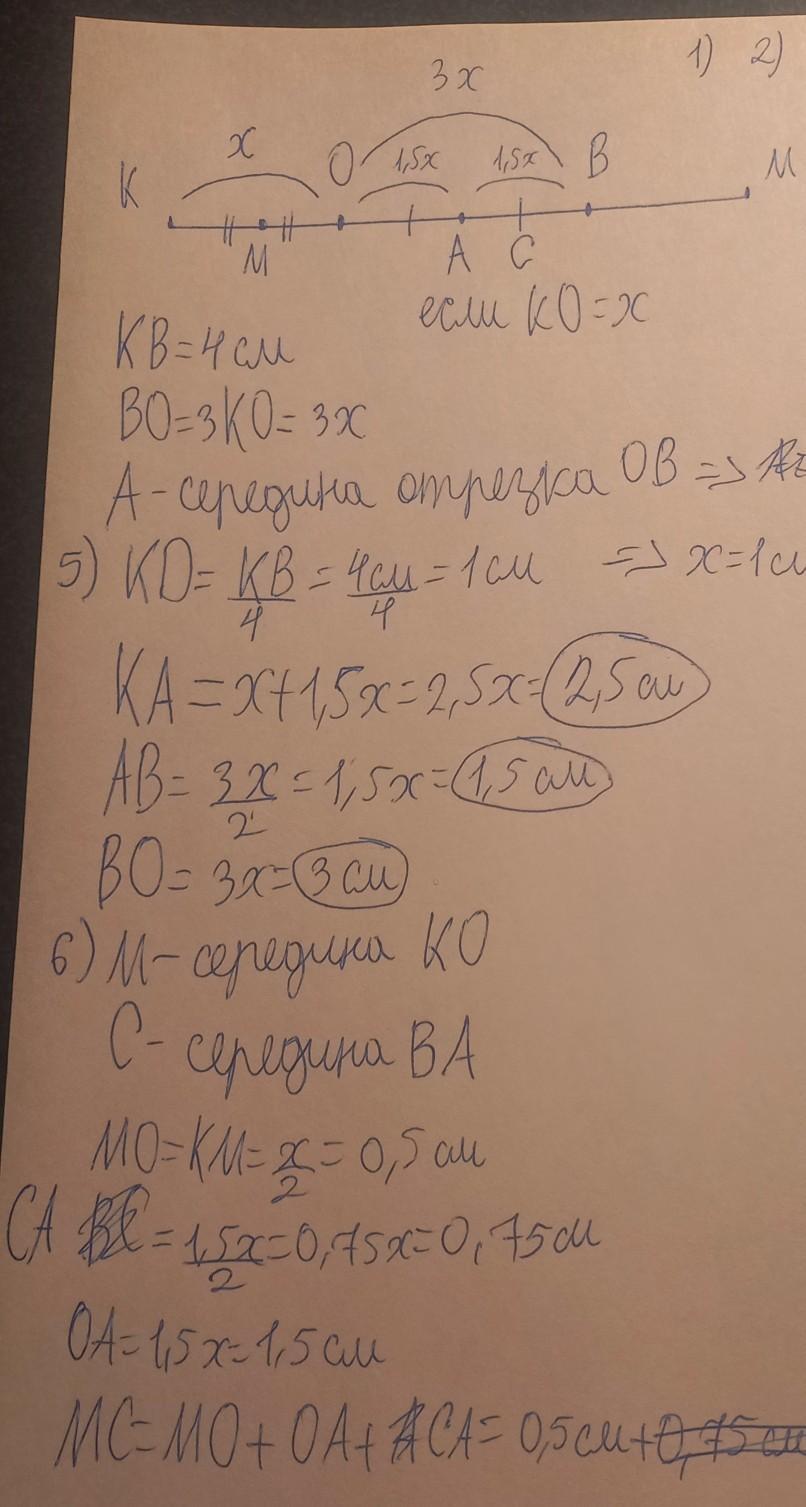 1) 2)
3x
x 1,5x 1,5x
K O B M
M A C
если KO=x
KB=4см
BO=3KO=3x
A-середина отрезка OB =>
5) KO=KB/4=4см/4=1см => x=1с
KA=x+1,5x=2,5x=2,5см
AB=3x/2=1,5x=1,5см
BO=3x=3см
6) M-середина KO
C-середина BA
MO=KM=x/2=0,5см
CA=1,5x/2=0,75x=0,75см
OA=1,5x=1,5см
MC=MO+OA+CA=0,5см+0,75см